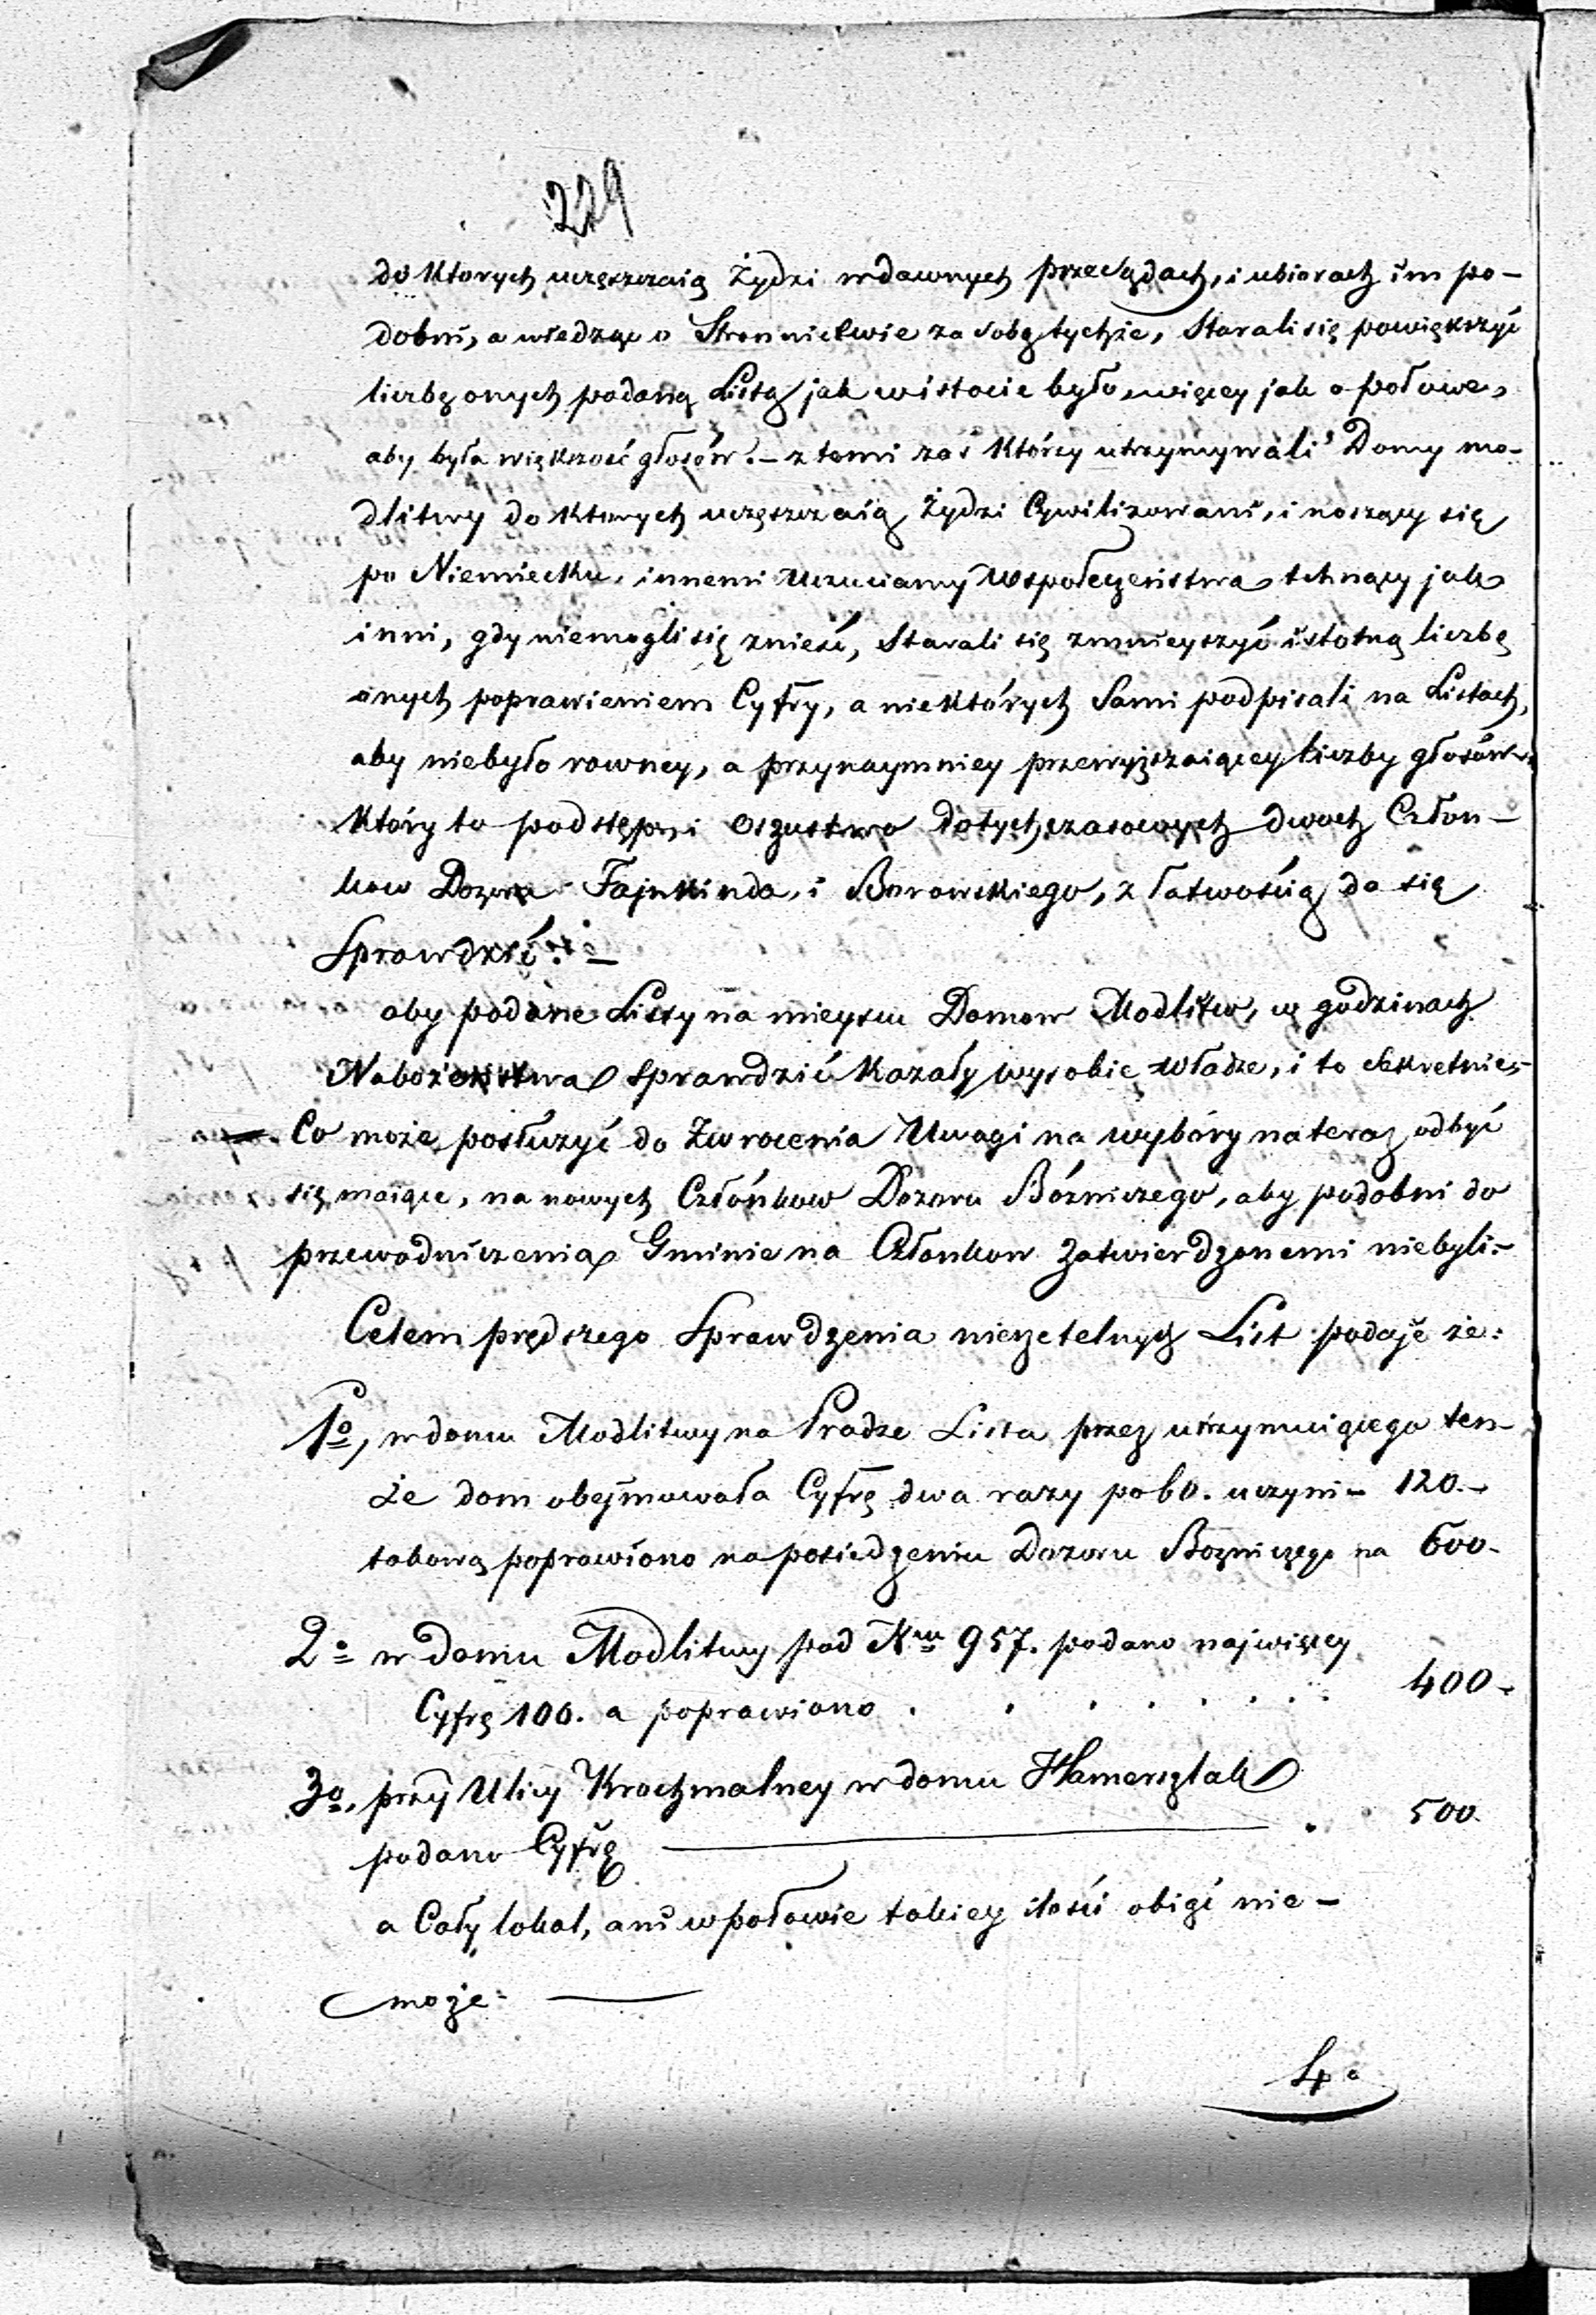 229
do Ktorych uczęszczaią Żydzi w dawnych przesądach, i ubiorach im po-
dobni, a wiedząc o Stronnictwie za sobą tychże, Starali się powiększyć
liczbę onych podaną Listą jak w istocie było, więcey jak o połowe,
aby była większość głosów. - z temi zaś Którzy utrzymywali Domy mo-
dlitwy do Ktorych uczęszczaią Żydzi Cywilizowani, i noszący się
po Niemiecku, innemi Uczuciamy Społeczeństwa tchnący jak
inni, gdy niemogli się znieść, Starali się zmnieyszyć istotną liczbę
onych poprawieniem Cyfry, a niektórych Sami podpisali na Listach,
aby niebyło rowney, a przynaymniey przewyższaiącey liczby głosów,
Który to podstęp, i Oszustwo dotychczasowych dwoch Człon-
kow Dozoru Fajnkinda, i Borowskiego, z łatwością da się
Sprawdzić. -
aby podane Listy na mieyscu Domow Modlitw, w godzinach
Nabożeństwa Sprawdzić Kazały wysokie Władze, i to Sekretnie,-
Co może posłużyć do Zwrocenia Uwagi na wybóry na teraz odbyć
się maiące, na nowych Człónkow Dozoru Bóżniczego, aby podobni do
przewodniczenia Gminie na Członkow Zatwierdzonemi niebyli.-
Celem prędszego Sprawdzenia nierzetelnych List podaje że:
1º, w domu Modlitwy na Pradze Lista przez utrzymuiącego ten-
że dom obejmowała Cyfrę dwa razy po 60. uczyni- 120.-
takową poprawiono na posiedzeniu Dozoru Bożniczego na 600-
2º w domu Modlitwy pod Nrm 957. podano najwięcy
Cyfrę 100. a poprawiono . . . . . . . . 400-
3º, przy Ulicy Krochmalney w domu Hamerszlak
podano Cyfrę . 500.
a Cały lokal, ani w połowie takiey ilości obiąć nie-
może-
4º